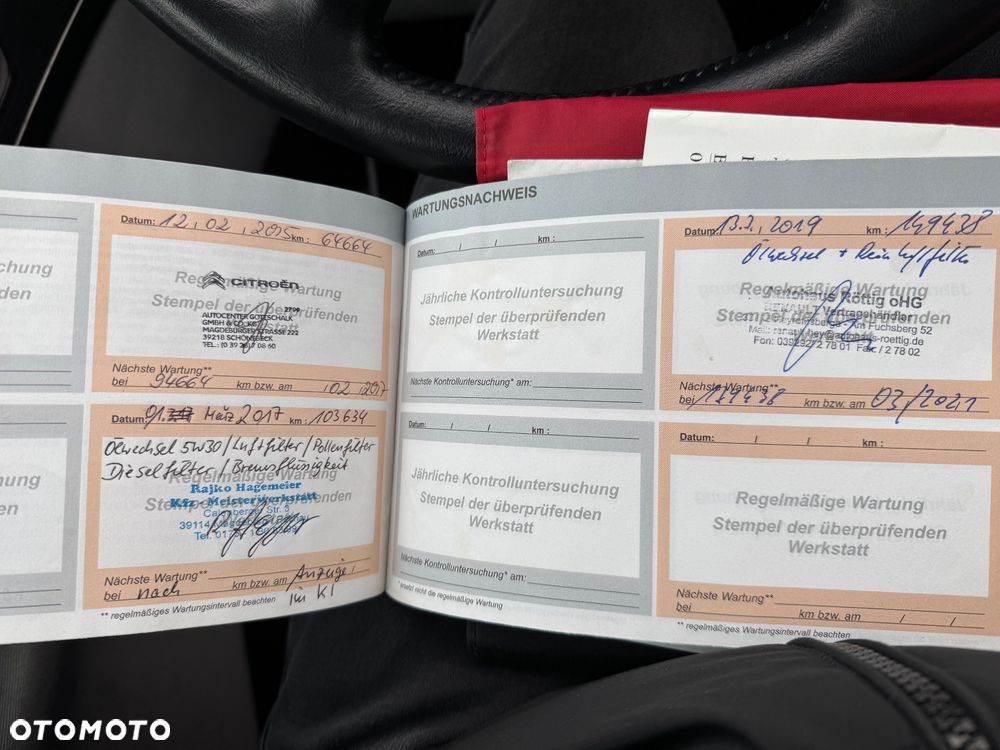 chung
den
ung
en
Datum: 12.02.2015 km: 64664
Regelmäßige Wartung
Stempel der überprüfenden
Werkstatt
CITROËN
AUTOCENTER GOTTSCHALK
GMBH & CO. KG
MAGDEBURGER STRASSE 222
39218 SCHÖNEBECK
Nächste Wartung**
bei 94664 km bzw. am /02/2017
Datum: 01. März 2017 km: 103634
Ölwechsel 5W30/Luftfilter/Pollenfilter
Dieselfilter/Bremsflüssigkeit
Regelmäßige Wartung
Stempel der überprüfenden
Werkstatt
Rajko Hagemeier
Kfz - Meisterwerkstatt
Nächste Wartung**
bei nach km bzw. am Anzeige
im KI
** regelmäßiges Wartungsintervall beachten
WARTUNGSNACHWEIS
Datum: / / km :
Jährliche Kontrolluntersuchung
Stempel der überprüfenden
Werkstatt
Nächste Kontrolluntersuchung* am:
Datum: / / km :
Jährliche Kontrolluntersuchung
Stempel der überprüfenden
Werkstatt
Nächste Kontrolluntersuchung* am:
* ersetzt nicht die regelmäßige Wartung
Datum: 13.3.2019 km : 149438
Ölwechsel +
Regelmäßige Wartung
Stempel der überprüfenden
Autohaus Röttig oHG
Vertragshändler
Am Fuchsberg 52
Fon: 039292/2 78 01 Fax: / 2 78 02
Nächste Wartung**
bei 179438 km bzw. am 03/2021
Datum: / / km :
Regelmäßige Wartung
Stempel der überprüfenden
Werkstatt
Nächste Wartung**
bei km bzw. am / /
** regelmäßiges Wartungsintervall beachten
OTOMOTO